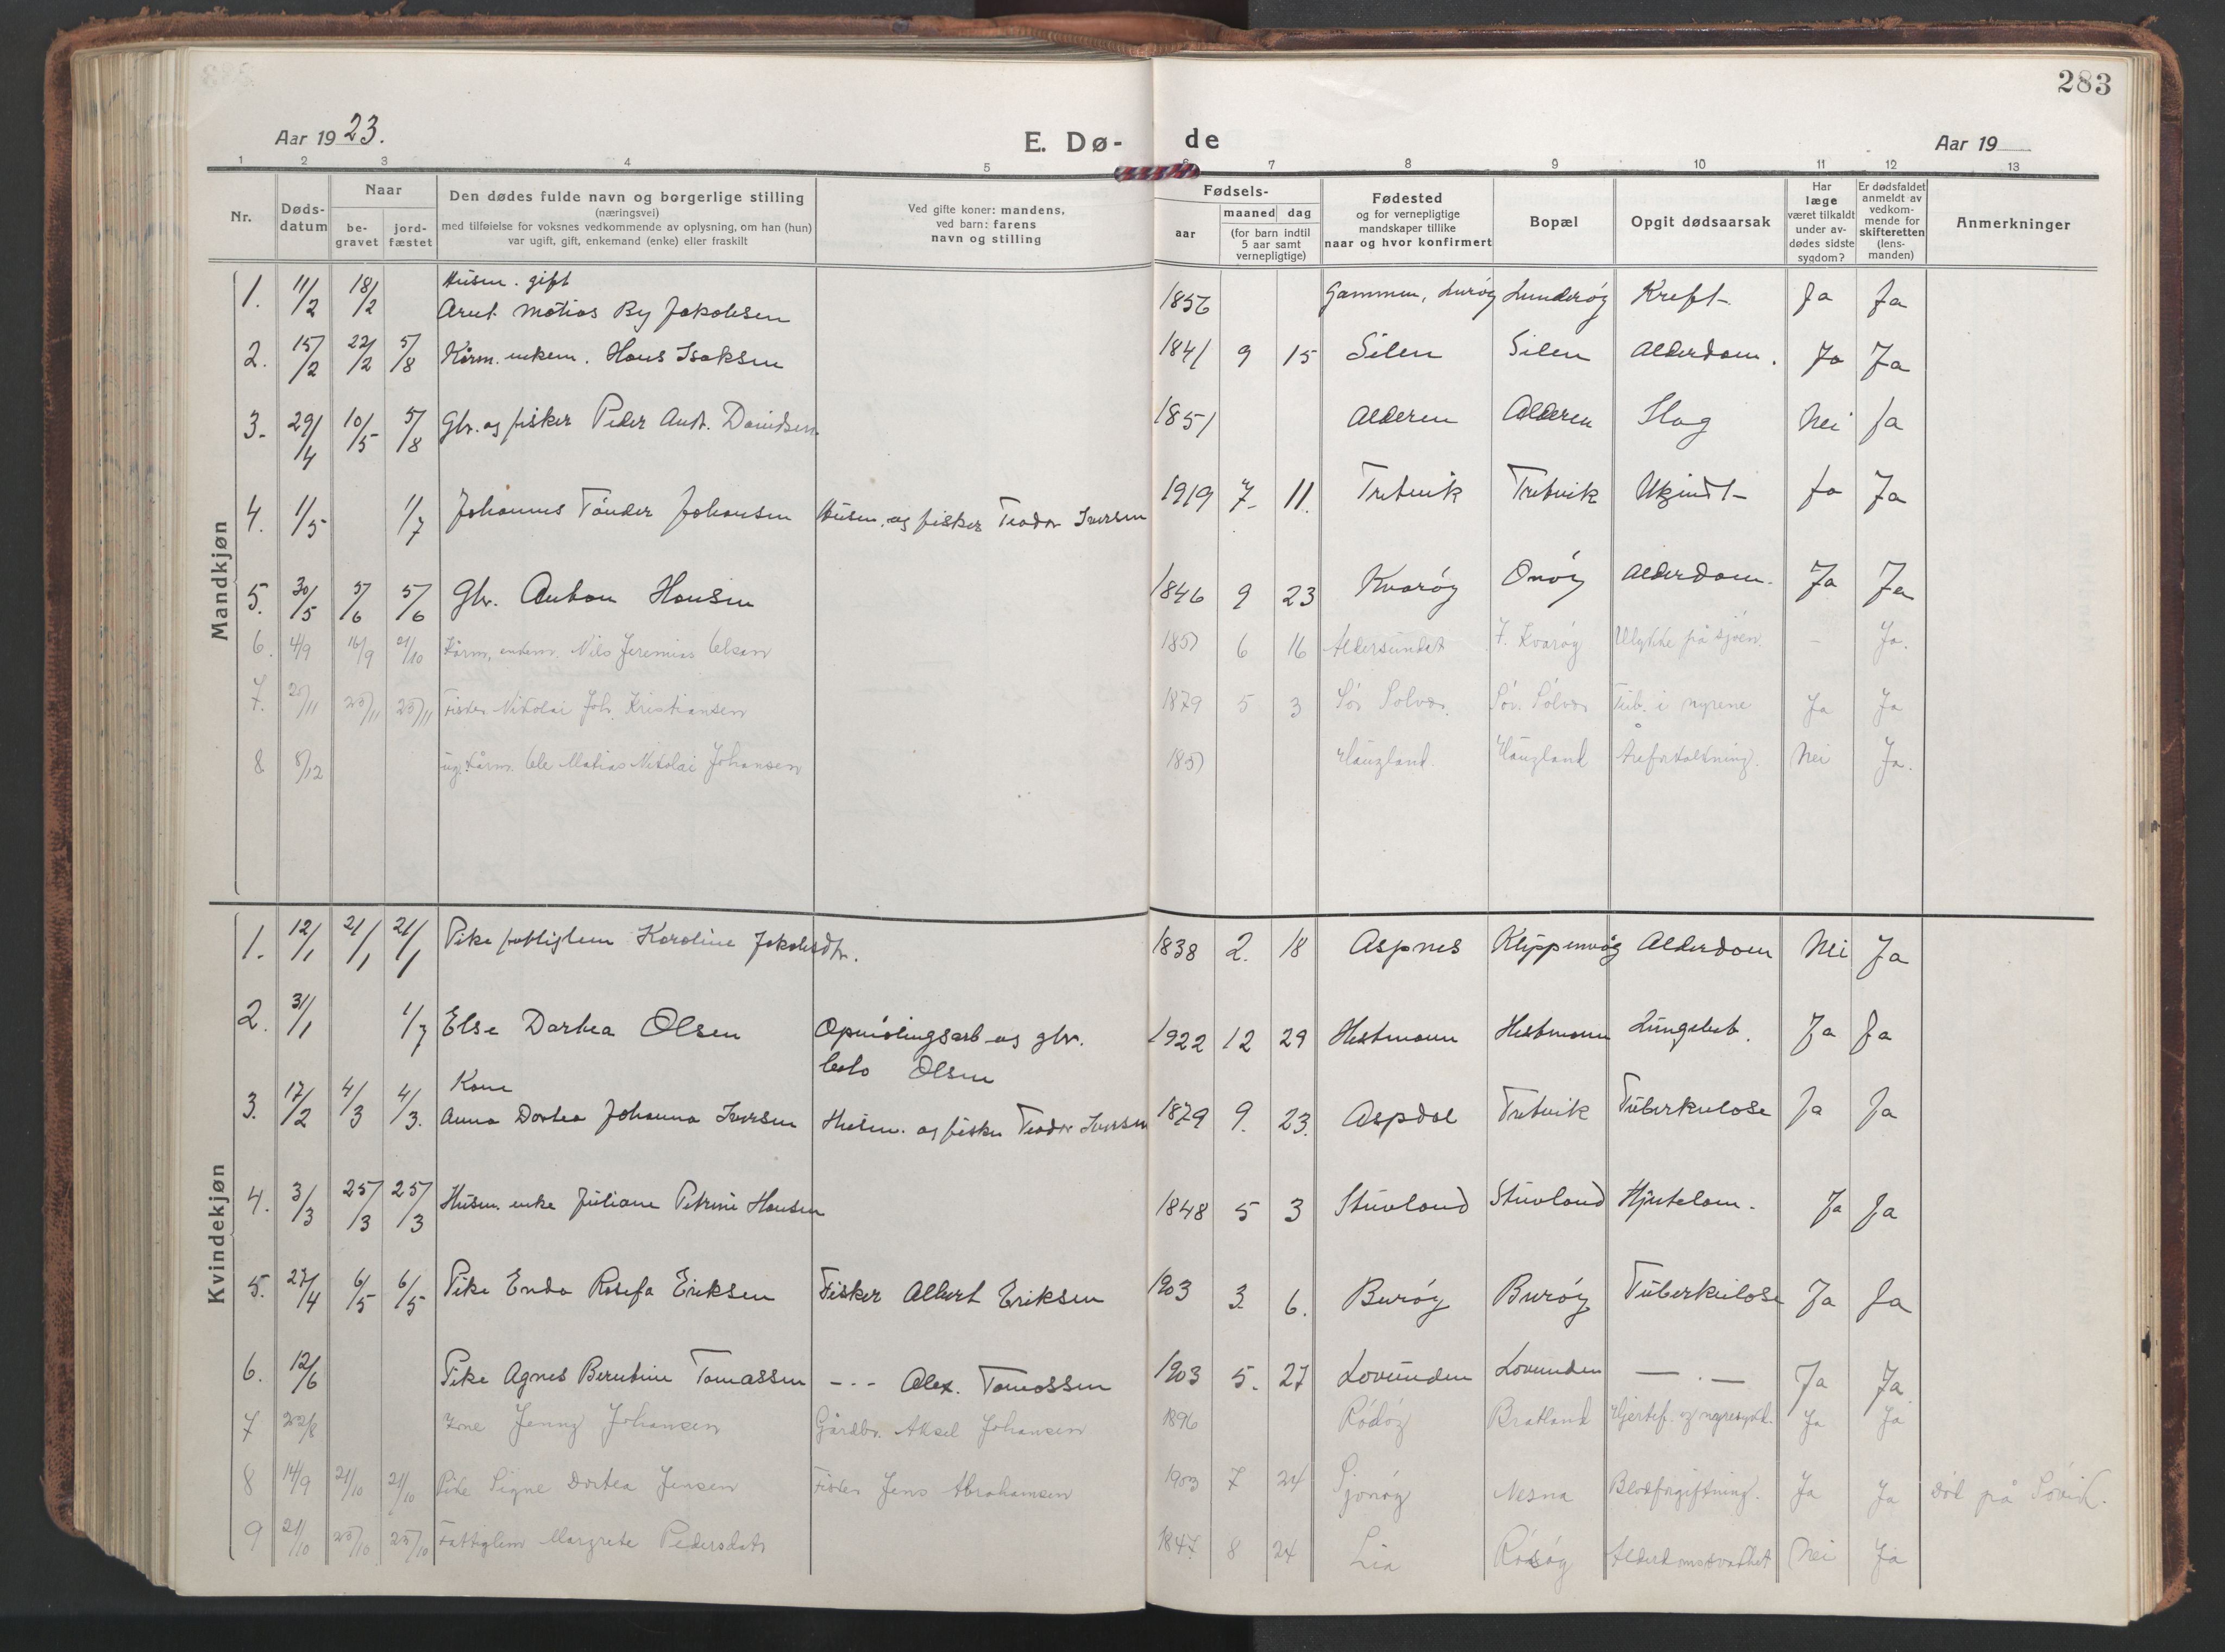 283
Aar 1923.
E. Dø-
de
Aar 19
1 2 3 4 5 6 7 8 9 10 11 12 13
Nr.
Døds-
datum
Naar
be-
gravet
jord-
fæstet
Den dødes fulde navn og borgerlige stilling
(næringsvei)
med tilføielse for voksnes vedkommende av oplysning, om han (hun)
var ugift, gift, enkemand (enke) eller fraskilt
Ved gifte koner: mandens,
ved barn: farens
navn og stilling
Fødsels-
aar
maaned dag
(for barn indtil
5 aar samt
vernepligtige)
Fødested
og for vernepligtige
mandskaper tillike
naar og hvor konfirmert
Bopæl
Opgit dødsaarsak
Har
læge
været tilkaldt
under av-
dødes sidste
sygdom?
Er dødsfaldet
anmeldt av
vedkom-
mende for
skifteretten
(lens-
manden)
Anmerkninger
Mandkjøn
Husm. gift
1. 11/2 18/2 Arnt Matias By Jakobsen 1856 Gammen, Lurøy Lunderøy Kreft Ja Ja
2. 15/2 22/2 5/8 Kårm. enkem. Hans Isaksen 1841 9 15 Silen Silen Alderdom. Ja Ja
3. 29/4 10/5 5/8 Gbr. og fisker Peder Ant. Davidsen 1851 Alderen Alderen Slag Nei Ja
4. 1/5 1/7 Johannes Tønder Johansen Husm. og fisker Teodor Iversen 1919 7 11. Tretvik Tretvik Ukjendt Ja Ja
5. 30/5 5/6 5/6 Gbr. Anton Hansen 1846 9 23 Kvarøy Onøy Alderdom. Ja Ja
6. 4/9 16/9 21/10 Kårm, enkem. Nils Jeremias Olsen 1857 6 16 Aldersundet I. Kvarøy Ulykke på sjøen. - Ja.
7. 20/11 25/11 25/11 Fisker Nikolai Joh. Kristiansen 1879 5 3 Sør Solvær Sør. Solvær Tub. i nyrene Ja Ja
8 8/12 ug. kårm. Ole Matias Nikolai Johansen 1857 Haugland. Haugland Åreforkalkning. Nei Ja.
Kvindekjøn
1. 12/1 21/1 21/1 Pike fattiglem Karoline Jakobsdtr. 1838 2. 18 Aspnes Klippenvåg Alderdom Nei Ja
2. 31/1 1/7 Else Dortea Olsen Opmålingsarb. og gbr. 1922 12 29 Hestmann Hestmann Lungebet. Ja Ja
Oslo Olsen
Kone
3. 17/2 4/3 4/3. Anna Dortea Johanna Iversen Husm. og fisker Teodor Iversen 1879 9. 23. Aspdal Tretvik Tuberkulose Ja Ja
4. 3/3 25/3 25/3 Husm. enke Juliane Petrine Hansen 1848 5 3 Stuvland Stuvland Hjertelam. Ja Ja
5. 27/4 6/5 6/5 Pike Enda Rosefa Eriksen Fisker Albert Eriksen 1903 3 6. Burøy Burøy Tuberkulose Ja Ja
6. 12/6 Pike Agnes Berntine Tomassen - - - Alex. Tomassen 1903 5. 27 Lovunden Lovunden — . — Ja Ja
7 22/8 Kone Jenny Johansen Gårdbr. Aksel Johansen 1896 Rødøy Bratland Hjertef. og nyresygd. Ja Ja
8 14/9 21/10 21/10 Pike Signe Dortea Jensen Fisker Jens Abrahamsen 1903 7 24 Sjonøy Nesna Blodforgiftning. Ja Ja død på Søvik.
9 21/10 25/10 25/10 Fattiglem Margrete Pedersdatr 1847 8 24 Lia Rødøy Alderdomssvakhet Nei Ja